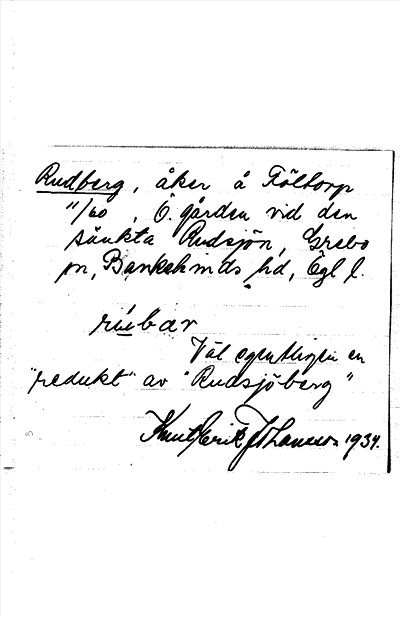 Rudberg, åker å Föltorp
11/60, Ö. gården vid den
sänkta Rudsjön, Grebo
sn, Bankekinds hd, Ögl l.
rúbar
Väl egentligen en
"redukt" av "Rudsjöberg"
Knut Erik Johansson 1934.